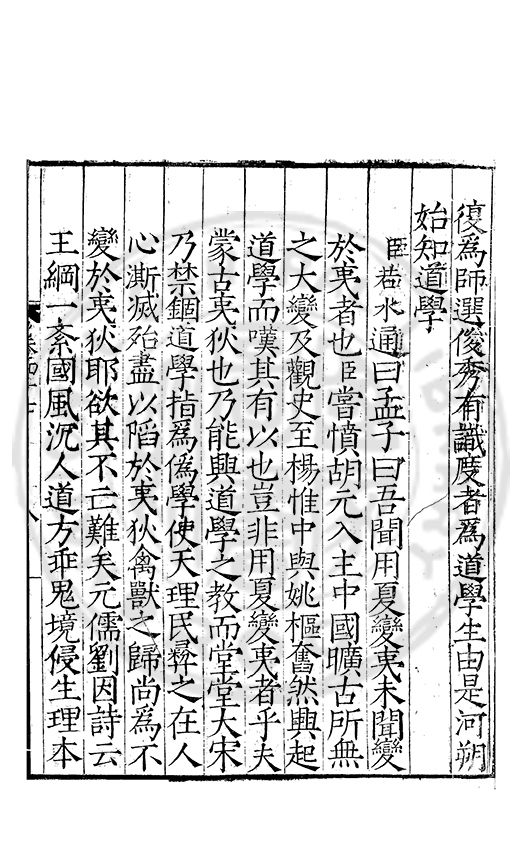 復為師選俊秀有識度者為道學生由是河朔
始知道學
臣若水通曰孟子曰吾聞用夏變夷未聞變
於夷者也臣嘗憤胡元入主中國曠古所無
之大變及觀史至楊惟中與姚樞奮然興起
道學而嘆其有以也豈非用夏變夷者乎夫
蒙古夷狄也乃能興道學之教而堂堂大宋
乃禁錮道學指為偽學使天理民彝之在人
心澌滅殆盡以陷於夷狄禽獸之歸尚為不
變於夷狄耶欲其不亡難矣元儒劉因詩云
王綱一紊國風沉人道方乖鬼境侵生理本